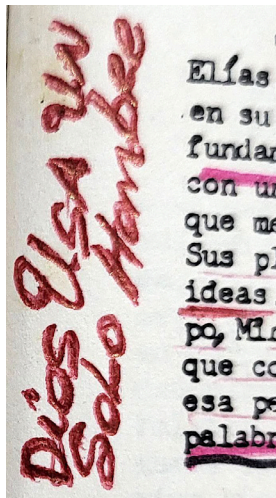 Dios USA un
Solo Hombre
Elías
en su
fundam
con un
que me
Sus pl
ideas
po, Min
que co
esa pe
palabr